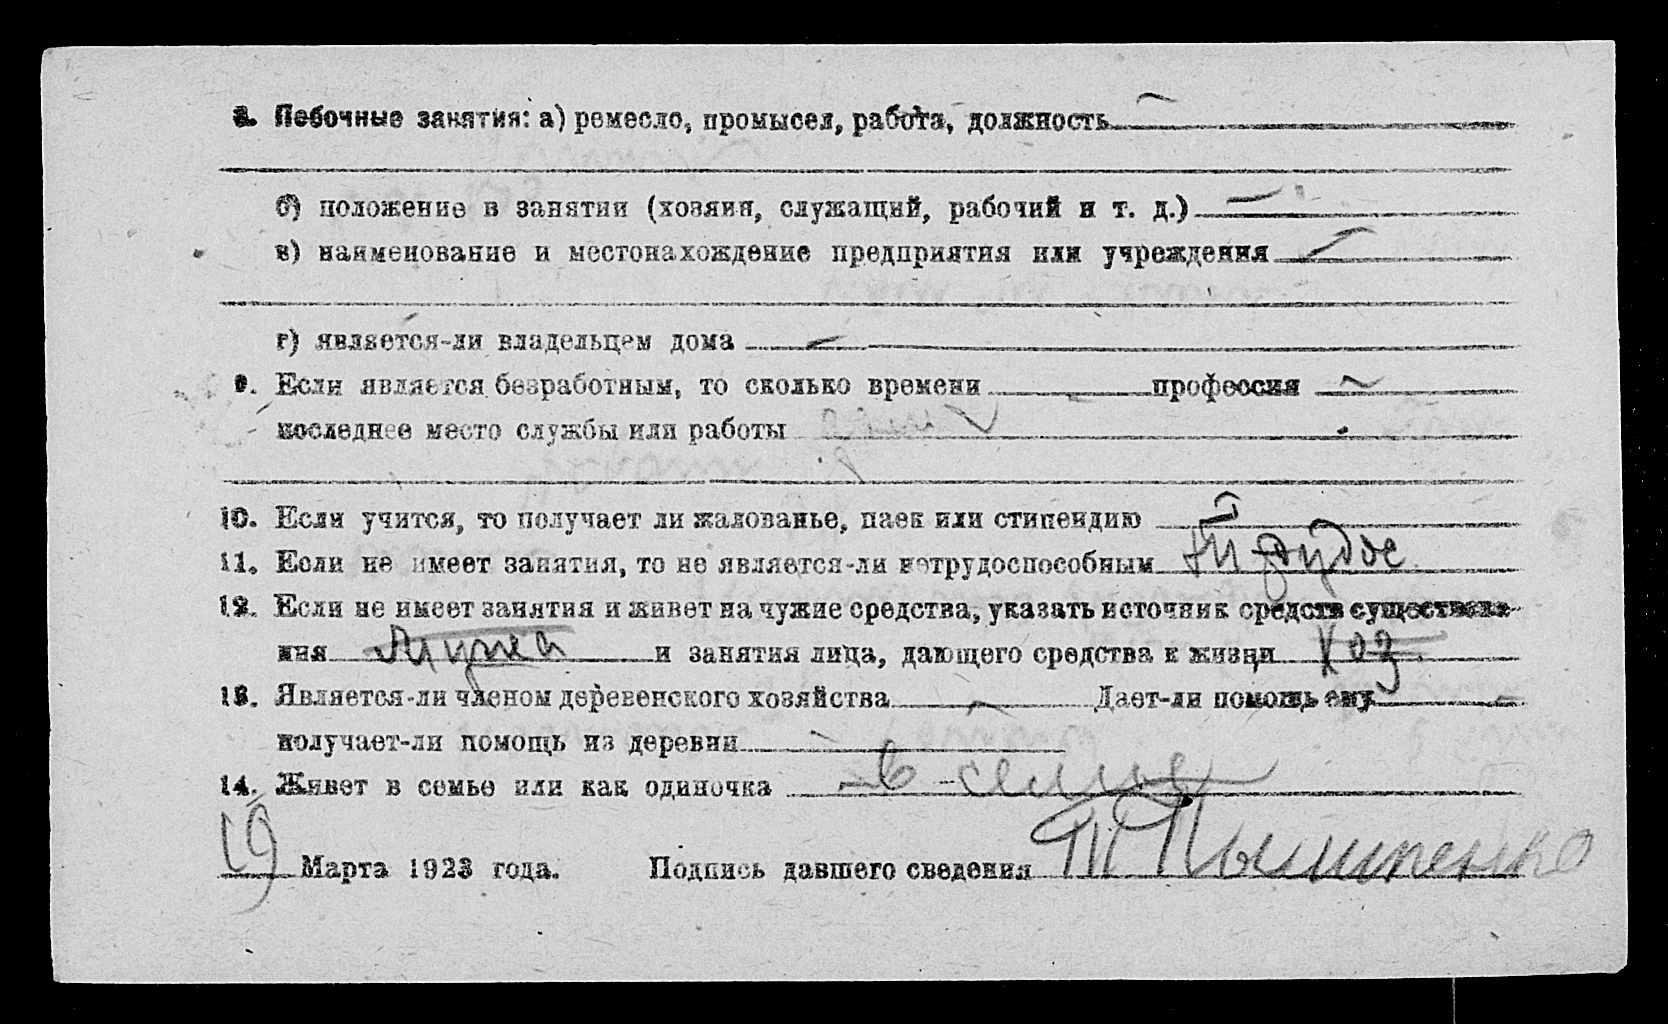 8. Побочные занятия: а) ремесло, промысел, работа, должность —
б) положение в занятии (хозяин, служащий, рабочий и т. д.) —
в) наименование и местонахождение предприятия или учреждения —
г) является-ли владельцем дома —
9. Если является безработным, то сколько времени — профессия —
последнее место службы или работы
10. Если учится, то получает ли жалованье, паек или стипендию —
11. Если не имеет занятия, то не является-ли нетрудоспособным
12. Если не имеет занятия и живет на чужие средства, указать источник средств существова-
ния мужа и занятия лица, дающего средства к жизни хоз.
13. Является-ли членом деревенского хозяйства — Дает-ли помощь ему —
получает-ли помощь из деревни —
14. Живет в семье или как одиночка в семье
19 Марта 1923 года. Подпись давшего сведения